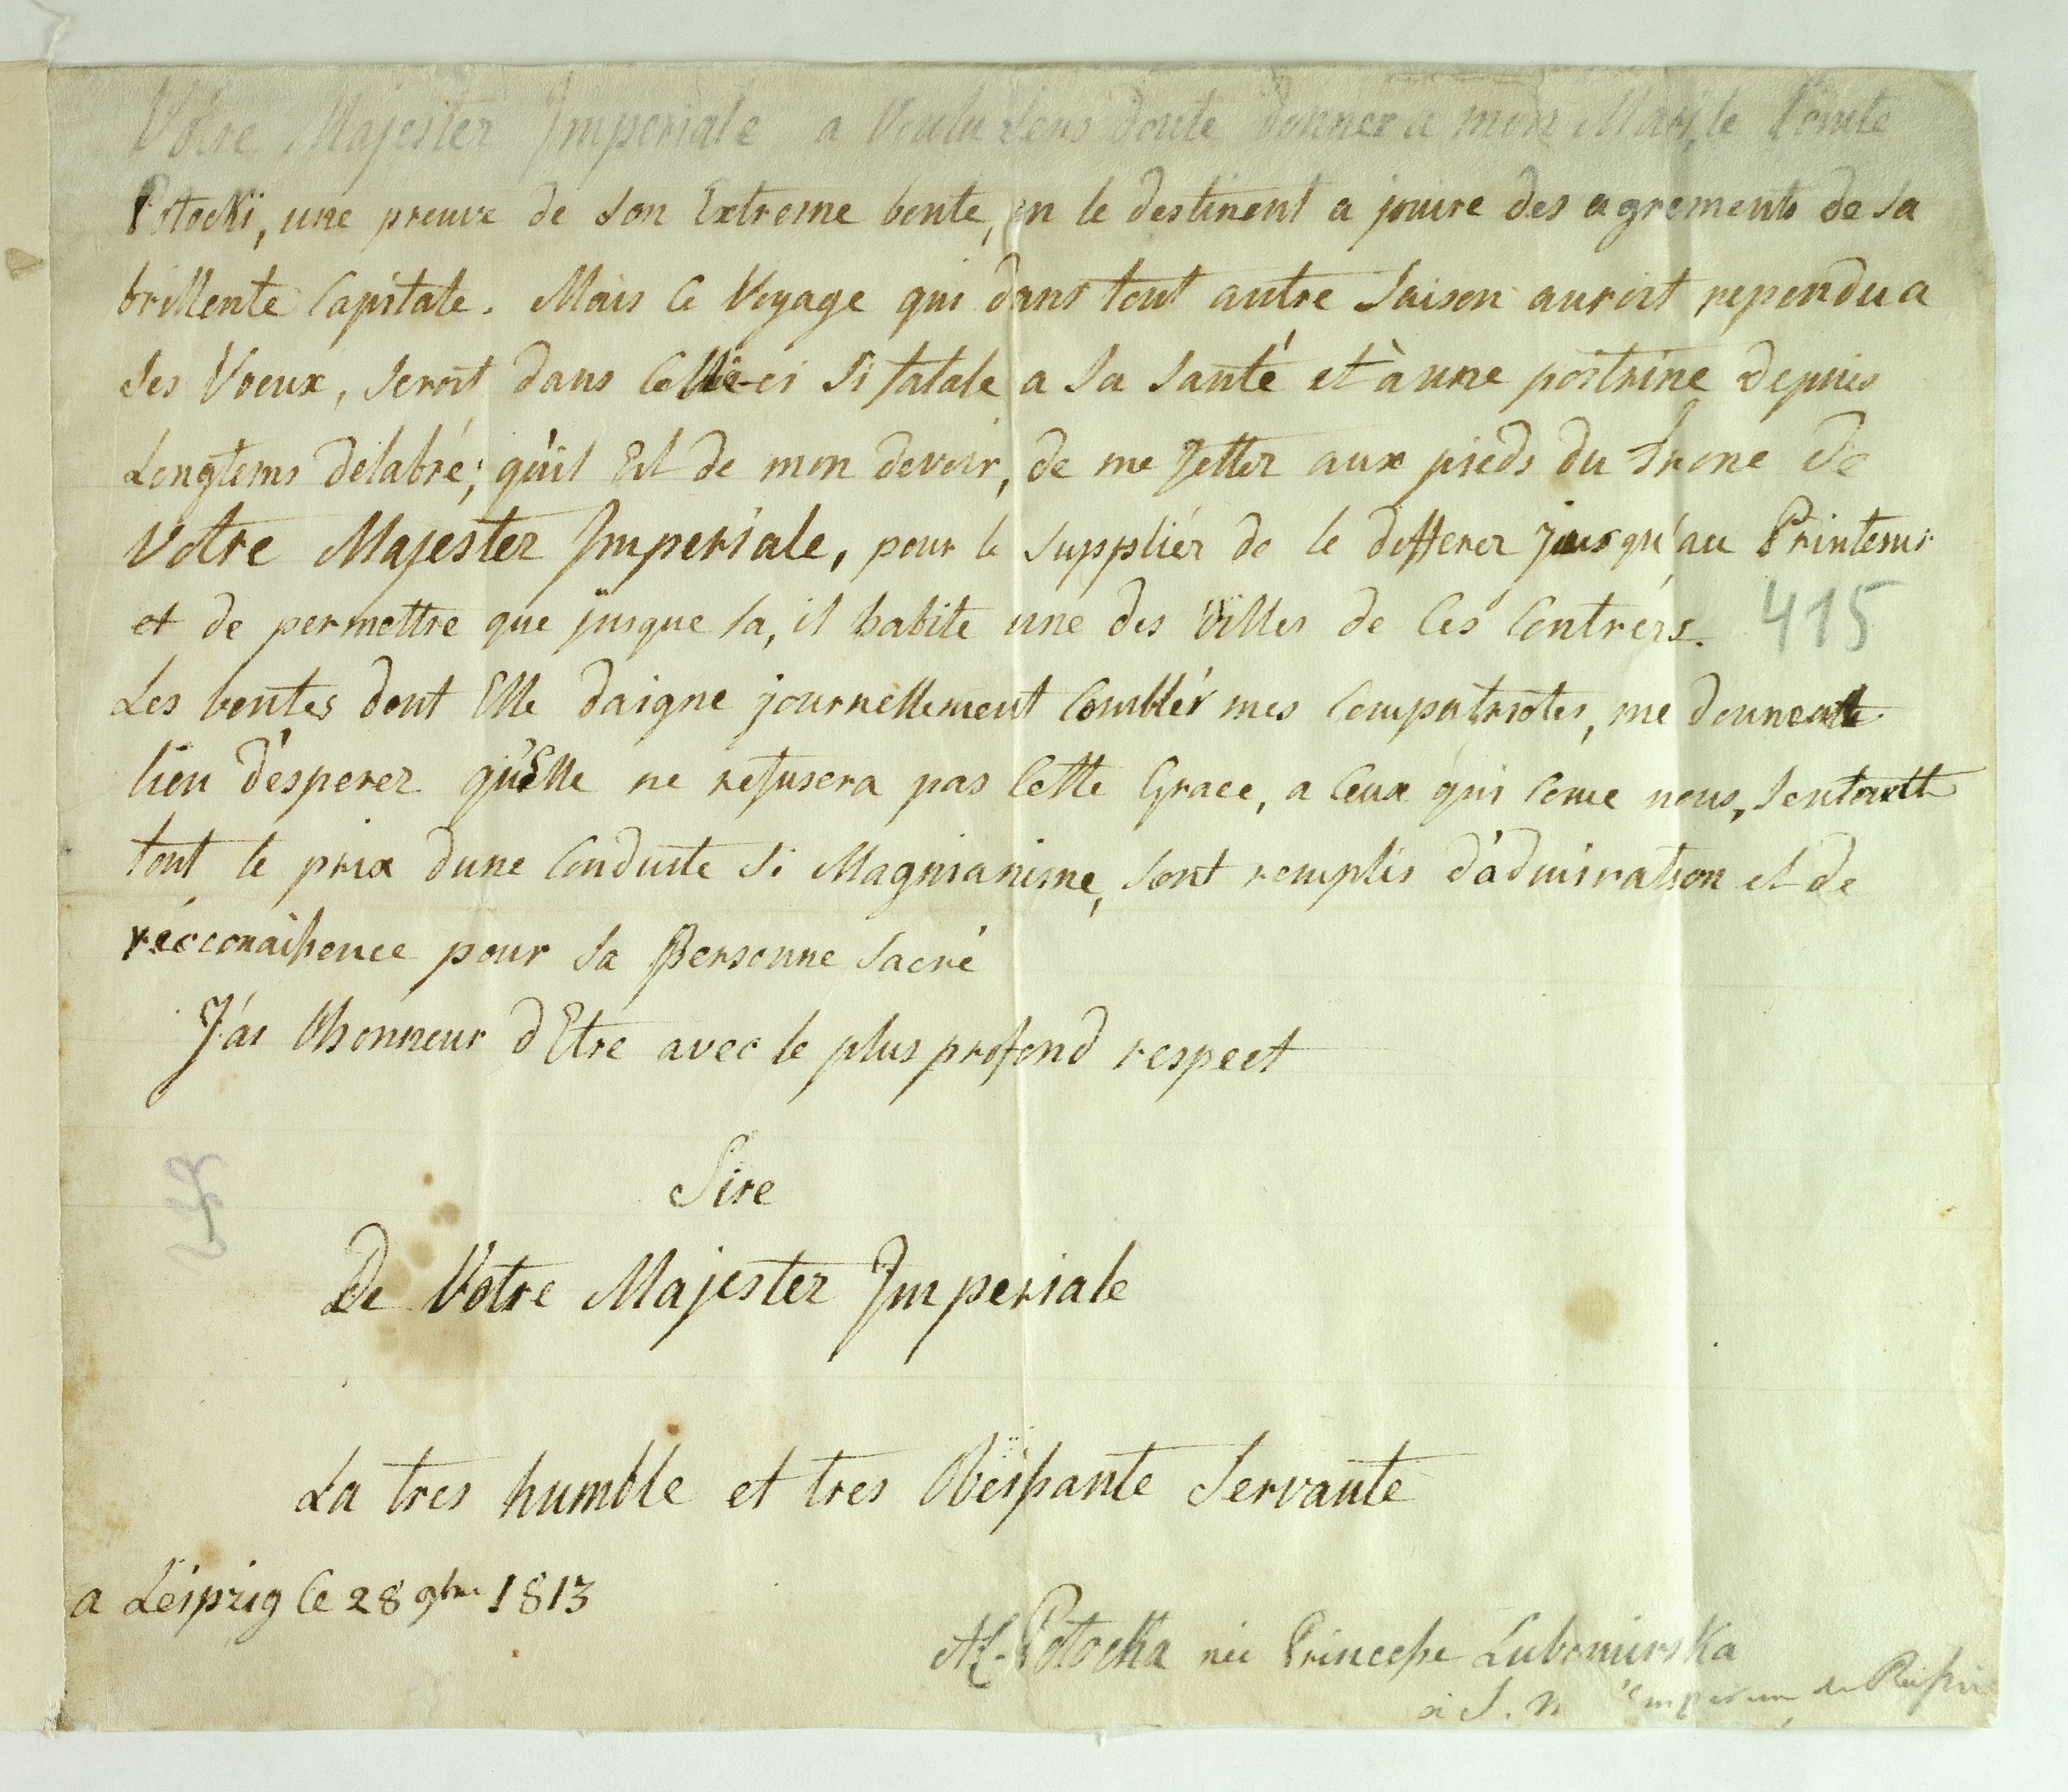 Votre Majester Imperiale a Voulu sens Doute donner a mon Mari, le Comte
Potocki, une preuve de son Extreme bonte, en le destinent a jouire des agrements de sa
brillente Capitale. Mais ce Voyage qui dans tout autre saison auroit rependu a
ses Voeux, seroit dans celle-ci si fatale a sa santé et à une poitrine depuis
Longtems délabré; qu'il Est de mon devoir, de me Jetter aux pieds du Trone de
Votre Majester Imperiale, pour le supplier de le differer jusqu'au Printems
et de permettre que jusque la, il habite une des Villes de Ces Contrers.
415
Les bontes dont Elle daigne journellement Combler mes Compatriotes, me donnent
lieu d'esperer qu'Elle ne refusera pas Cette Grace, a Ceux qui Come nous,
tout le prix dune Conduite si Magnianime, sont remplis d'admiration et de
réconaissence pour sa Personne sacré
J'ai l'honneur d'Etre avec le plus profond respect
Sire
De Votre Majester Imperiale
La tres humble et tres Obeissante Servante
a Leipzig Ce 28 9bre 1813
Potocka née Princesse Lubomirska
à S. M l'empereur de Russie